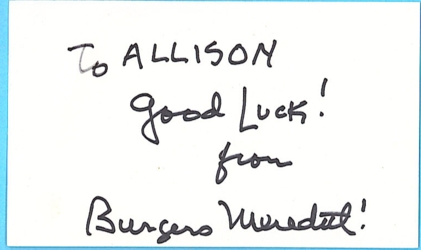 To ALLISON
Good Luck!
from
Burgess Meredith!